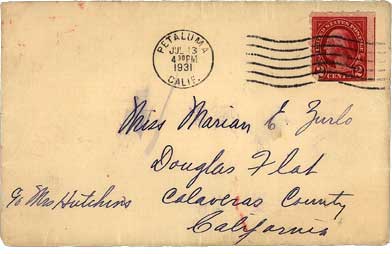 PETALUMA
JUL 13
4 30PM
1931
CALIF.
UNITED STATES POSTAGE
2 CENTS 2
Miss Marian E. Zurlo
Douglas Flat
c/o Mrs Hutchins Calaveras County
California